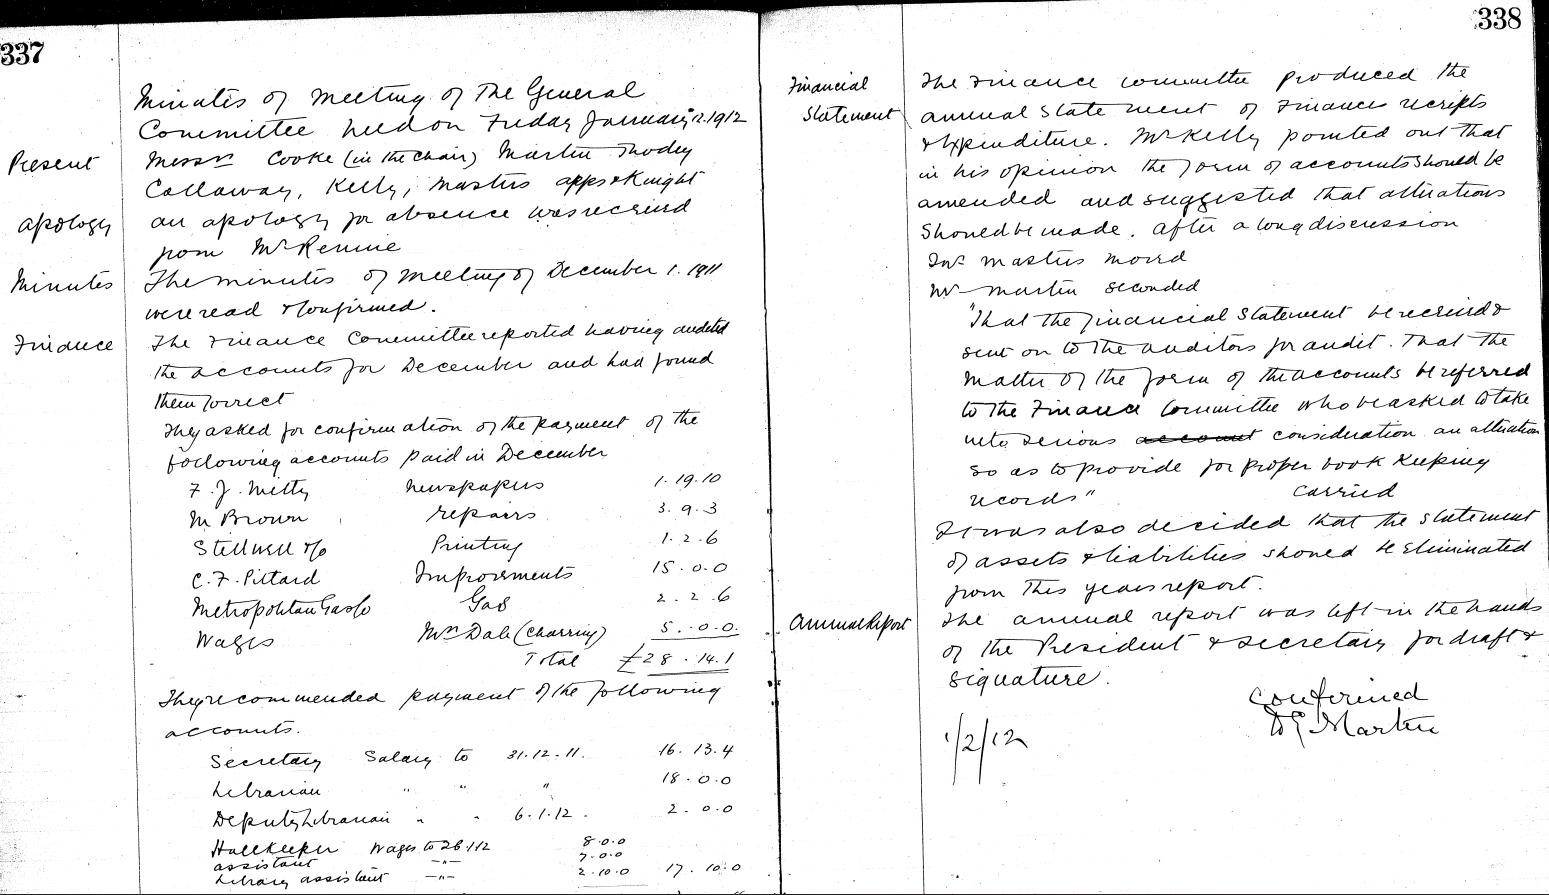 337
Minutes of Meeting of The General
Committee held on Friday January 12. 1912
Present Messrs Cooke (in the chair) Martin Thodey
Callaway, Kelly, Masters Apps & Knight
Apology An apology for absence was received
from Mr Rennie
Minutes The minutes of Meeting of December 1. 1911
were read & Confirmed.
Finance The Finance Committee reported having audited
the accounts for December and had found
them correct
They asked for confirmation of the payment of the
following accounts paid in December
F. J. Mitty Newspapers 1. 19. 10
M Brown repairs 3. 9. 3
Stillwell & Co Printing 1. 2. 6
C. F. Pittard Improvements 15. 0. 0
Metropolitan Gas Co Gas 2. 2. 6
Wages Mrs Dale (Charring) 5. 0. 0.
Total £28. 14. 1
They recommended payment of the following
accounts.
Secretary Salary to 31. 12. 11. 16. 13. 4
Librarian " " " 18. 0. 0
Deputy Librarian " " 6. 1. 12. 2. 0. 0
Hallkeeper Wages to 26 1 12 8. 0. 0
assistant —"— 7. 0. 0
Library assistant —"— 2. 10. 0 17. 10. 0
338
Financial The Finance Committee produced the
Statement annual statement of Finances receipts
& Expenditure. Mr Kelly pointed out that
in his opinion the form of accounts should be
amended and suggested that alterations
should be made. After a long discussion
Mr Masters moved
Mr Martin seconded
"That the financial statement be received &
sent on to the auditors for audit. That the
matter of the form of the accounts be referred
to the Finance Committee who be asked to take
into serious account consideration an alteration
so as to provide for proper book keeping
records" Carried
It was also decided that the statement
of assets & liabilities should be eliminated
from this years report.
Annual Report The annual report was left in the hands
of the President & Secretary for draft &
signature.
Confirmed
1/2/12 D E Martin